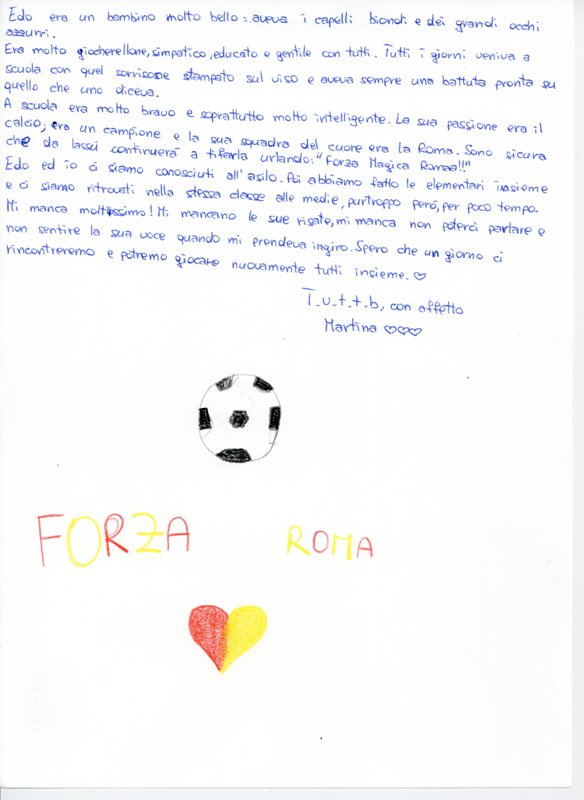 Edo era un bambino molto bello: aveva i capelli biondi e dei grandi occhi
azzurri.
Era molto giocherellone, simpatico, educato e gentile con tutti. Tutti i giorni veniva a
scuola con quel sorrisone stampato sul viso e aveva sempre una battuta pronta su
quello che uno diceva.
A scuola era molto bravo e soprattutto molto intelligente. La sua passione era il
calcio; era un campione e la sua squadra del cuore era la Roma. Sono sicura
che da lassù continuerà a tifarla urlando: "Forza Magica Roma!!"
Edo ed io ci siamo conosciuti all'asilo. Poi abbiamo fatto le elementari insieme
e ci siamo ritrovati nella stessa classe alle medie, purtroppo però, per poco tempo.
Mi manca moltissimo! Mi mancano le sue risate, mi manca non poterci parlare e
non sentire la sua voce quando mi prendeva in giro. Spero che un giorno ci
rincontreremo e potremo giocare nuovamente tutti insieme. ♡
T.u.t.t.b, con affetto
Martina ♡♡♡
FORZA ROMA